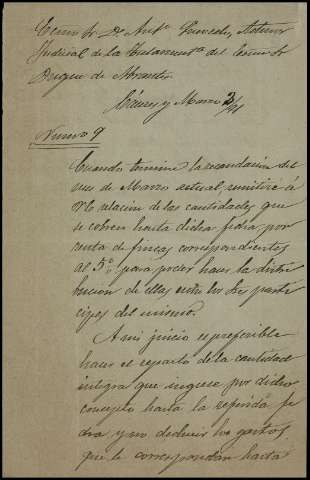 Excmo Sr. Dn Antº Quevedo, Actuario
Judicial de la Testamentª del Excmo Sr
Duque de Abrantes
Cáceres y Marzo 3/91
Numo 9
Cuando termine la recaudación del
mes de Marzo actual, remitiré á
V. relacion de las cantidades que
se cobren hasta dicha fecha por
cuenta de fincas correspondientes
al 5º para poder hacer la distri
bucion de ellas entre los Sres partí
cipes del mismo.
A mi juicio es preferible
hacer el reparto de la cantidad
integra que ingrese por dicho
concepto hasta la referida fe
cha y no deducir los gastos
que le correspondan hasta